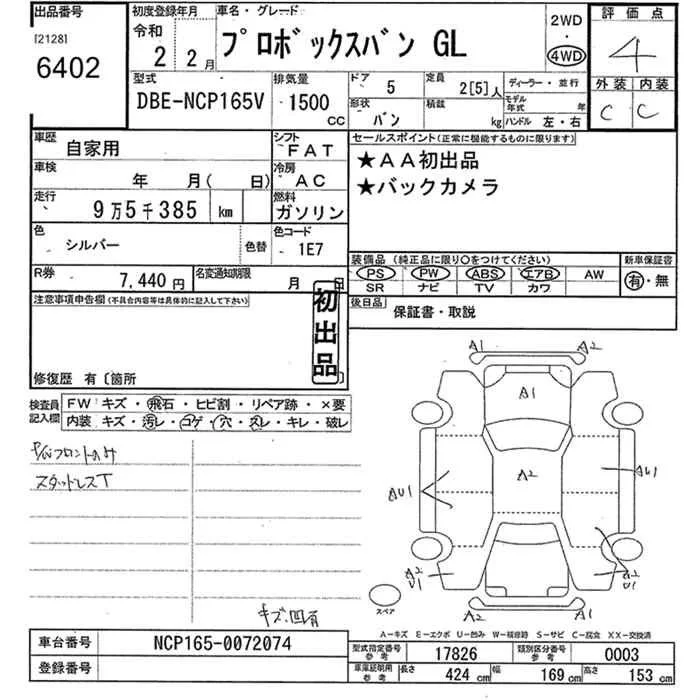 出品番号
[2128]
6402
初度登録年月
令和
2 2月
車名・グレード
プロボックスバン GL
2WD
・
4WD
評価点
4
外装 内装
C C
型式
DBE-NCP165V
排気量
1500
CC
ドア
5
定員
2[5]人
ディーラー・並行
形状
バン
積載
kg
モデル年式 年
ハンドル 左・右
車歴
自家用
シフト
FAT
車検
年 月( 日)
冷房
AC
走行
9万5千385 km
燃料
ガソリン
色
シルバー
色替
色コード
1E7
R券
7,440円
名変通知期限
月 日
セールスポイント(正常に機能するものに限ります)
★AA初出品
★バックカメラ
装備品(純正品に限り〇をつけてください)
PS PW ABS エアB AW
SR ナビ TV カワ
新車保証書
有・無
後日品
保証書・取説
注意事項申告欄(不具合内容等は具体的に記入して下さい)
初出品
修復歴 有〔箇所 〕
検査員記入欄
FW キズ・飛石・ヒビ割・リペア跡・×要
内装 キズ・汚レ・コゲ・穴・スレ・キレ・破レ
スタッドレスT
キズ、凹有
A1 A2
A1
A2
AU1
AU1
A2
U1
A2
U1
A2 A1
スペア
A-キズ E-エクボ U-凹み W-補修跡 S-サビ C-腐食 XX-交換済
車台番号
NCP165-0072074
登録番号
型式指定番号参考
17826
類別区分番号参考
0003
車庫証明用参考
長さ 424 cm 幅 169 cm 高さ 153 cm